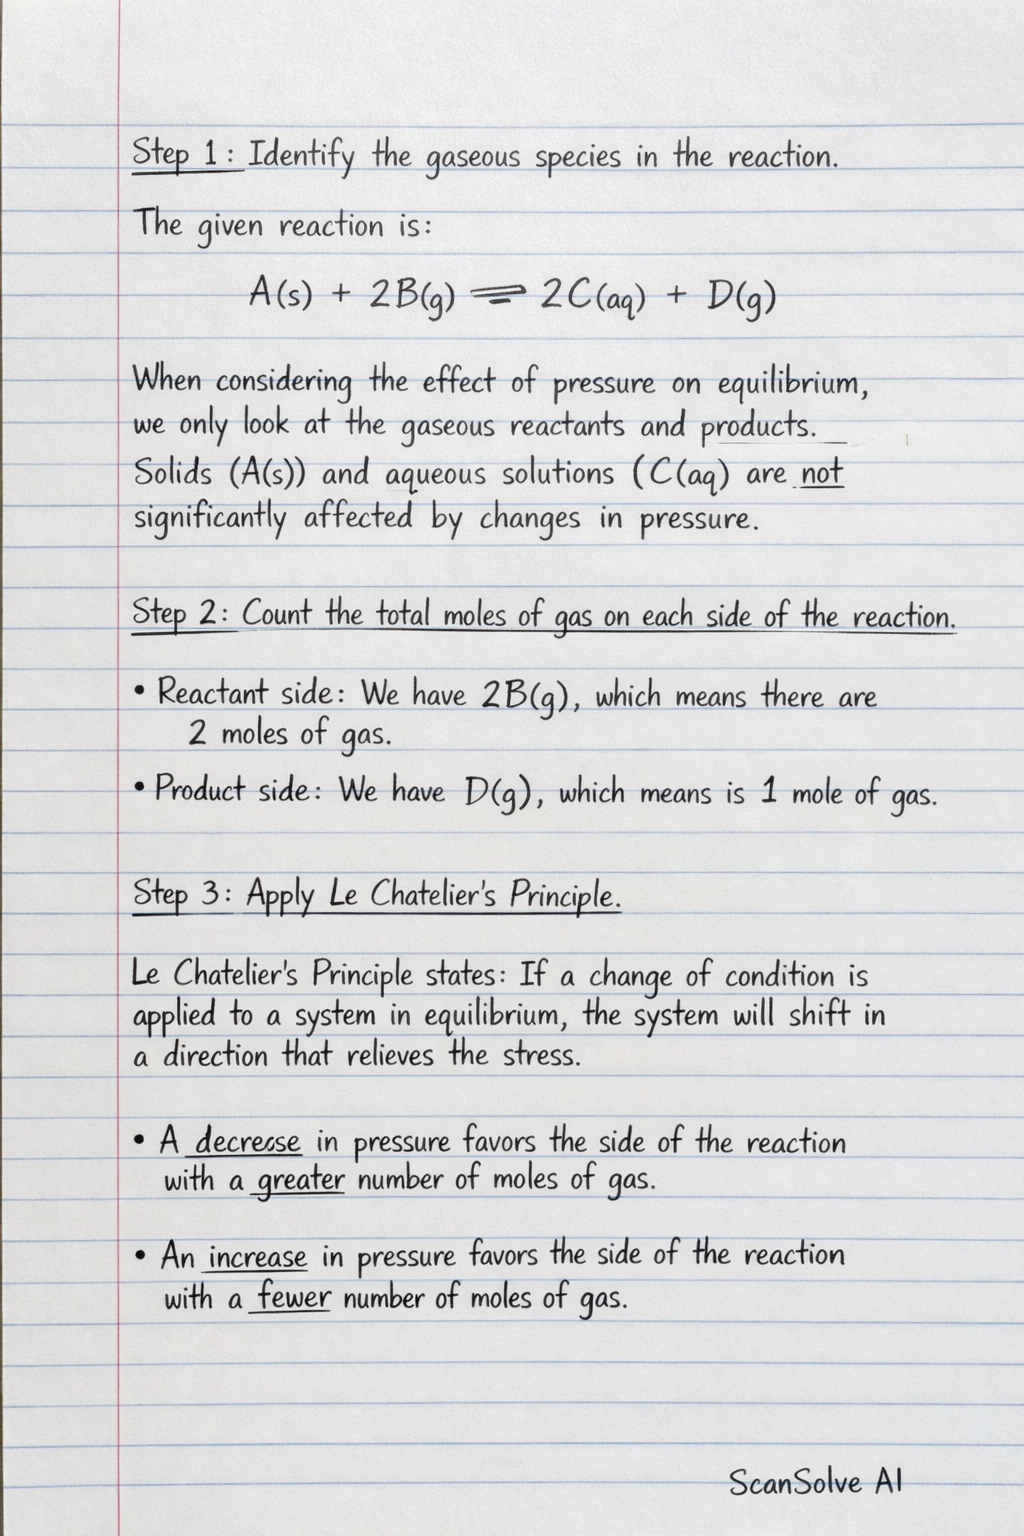 Step 1: Identify the gaseous species in the reaction.
The given reaction is:
A(s) + 2B(g) ⇌ 2C(aq) + D(g)
When considering the effect of pressure on equilibrium,
we only look at the gaseous reactants and products.
Solids (A(s)) and aqueous solutions (C(aq) are not
significantly affected by changes in pressure.
Step 2: Count the total moles of gas on each side of the reaction.
• Reactant side: We have 2B(g), which means there are
2 moles of gas.
• Product side: We have D(g), which means is 1 mole of gas.
Step 3: Apply Le Chatelier's Principle.
Le Chatelier's Principle states: If a change of condition is
applied to a system in equilibrium, the system will shift in
a direction that relieves the stress.
• A decrease in pressure favors the side of the reaction
with a greater number of moles of gas.
• An increase in pressure favors the side of the reaction
with a fewer number of moles of gas.
ScanSolve AI